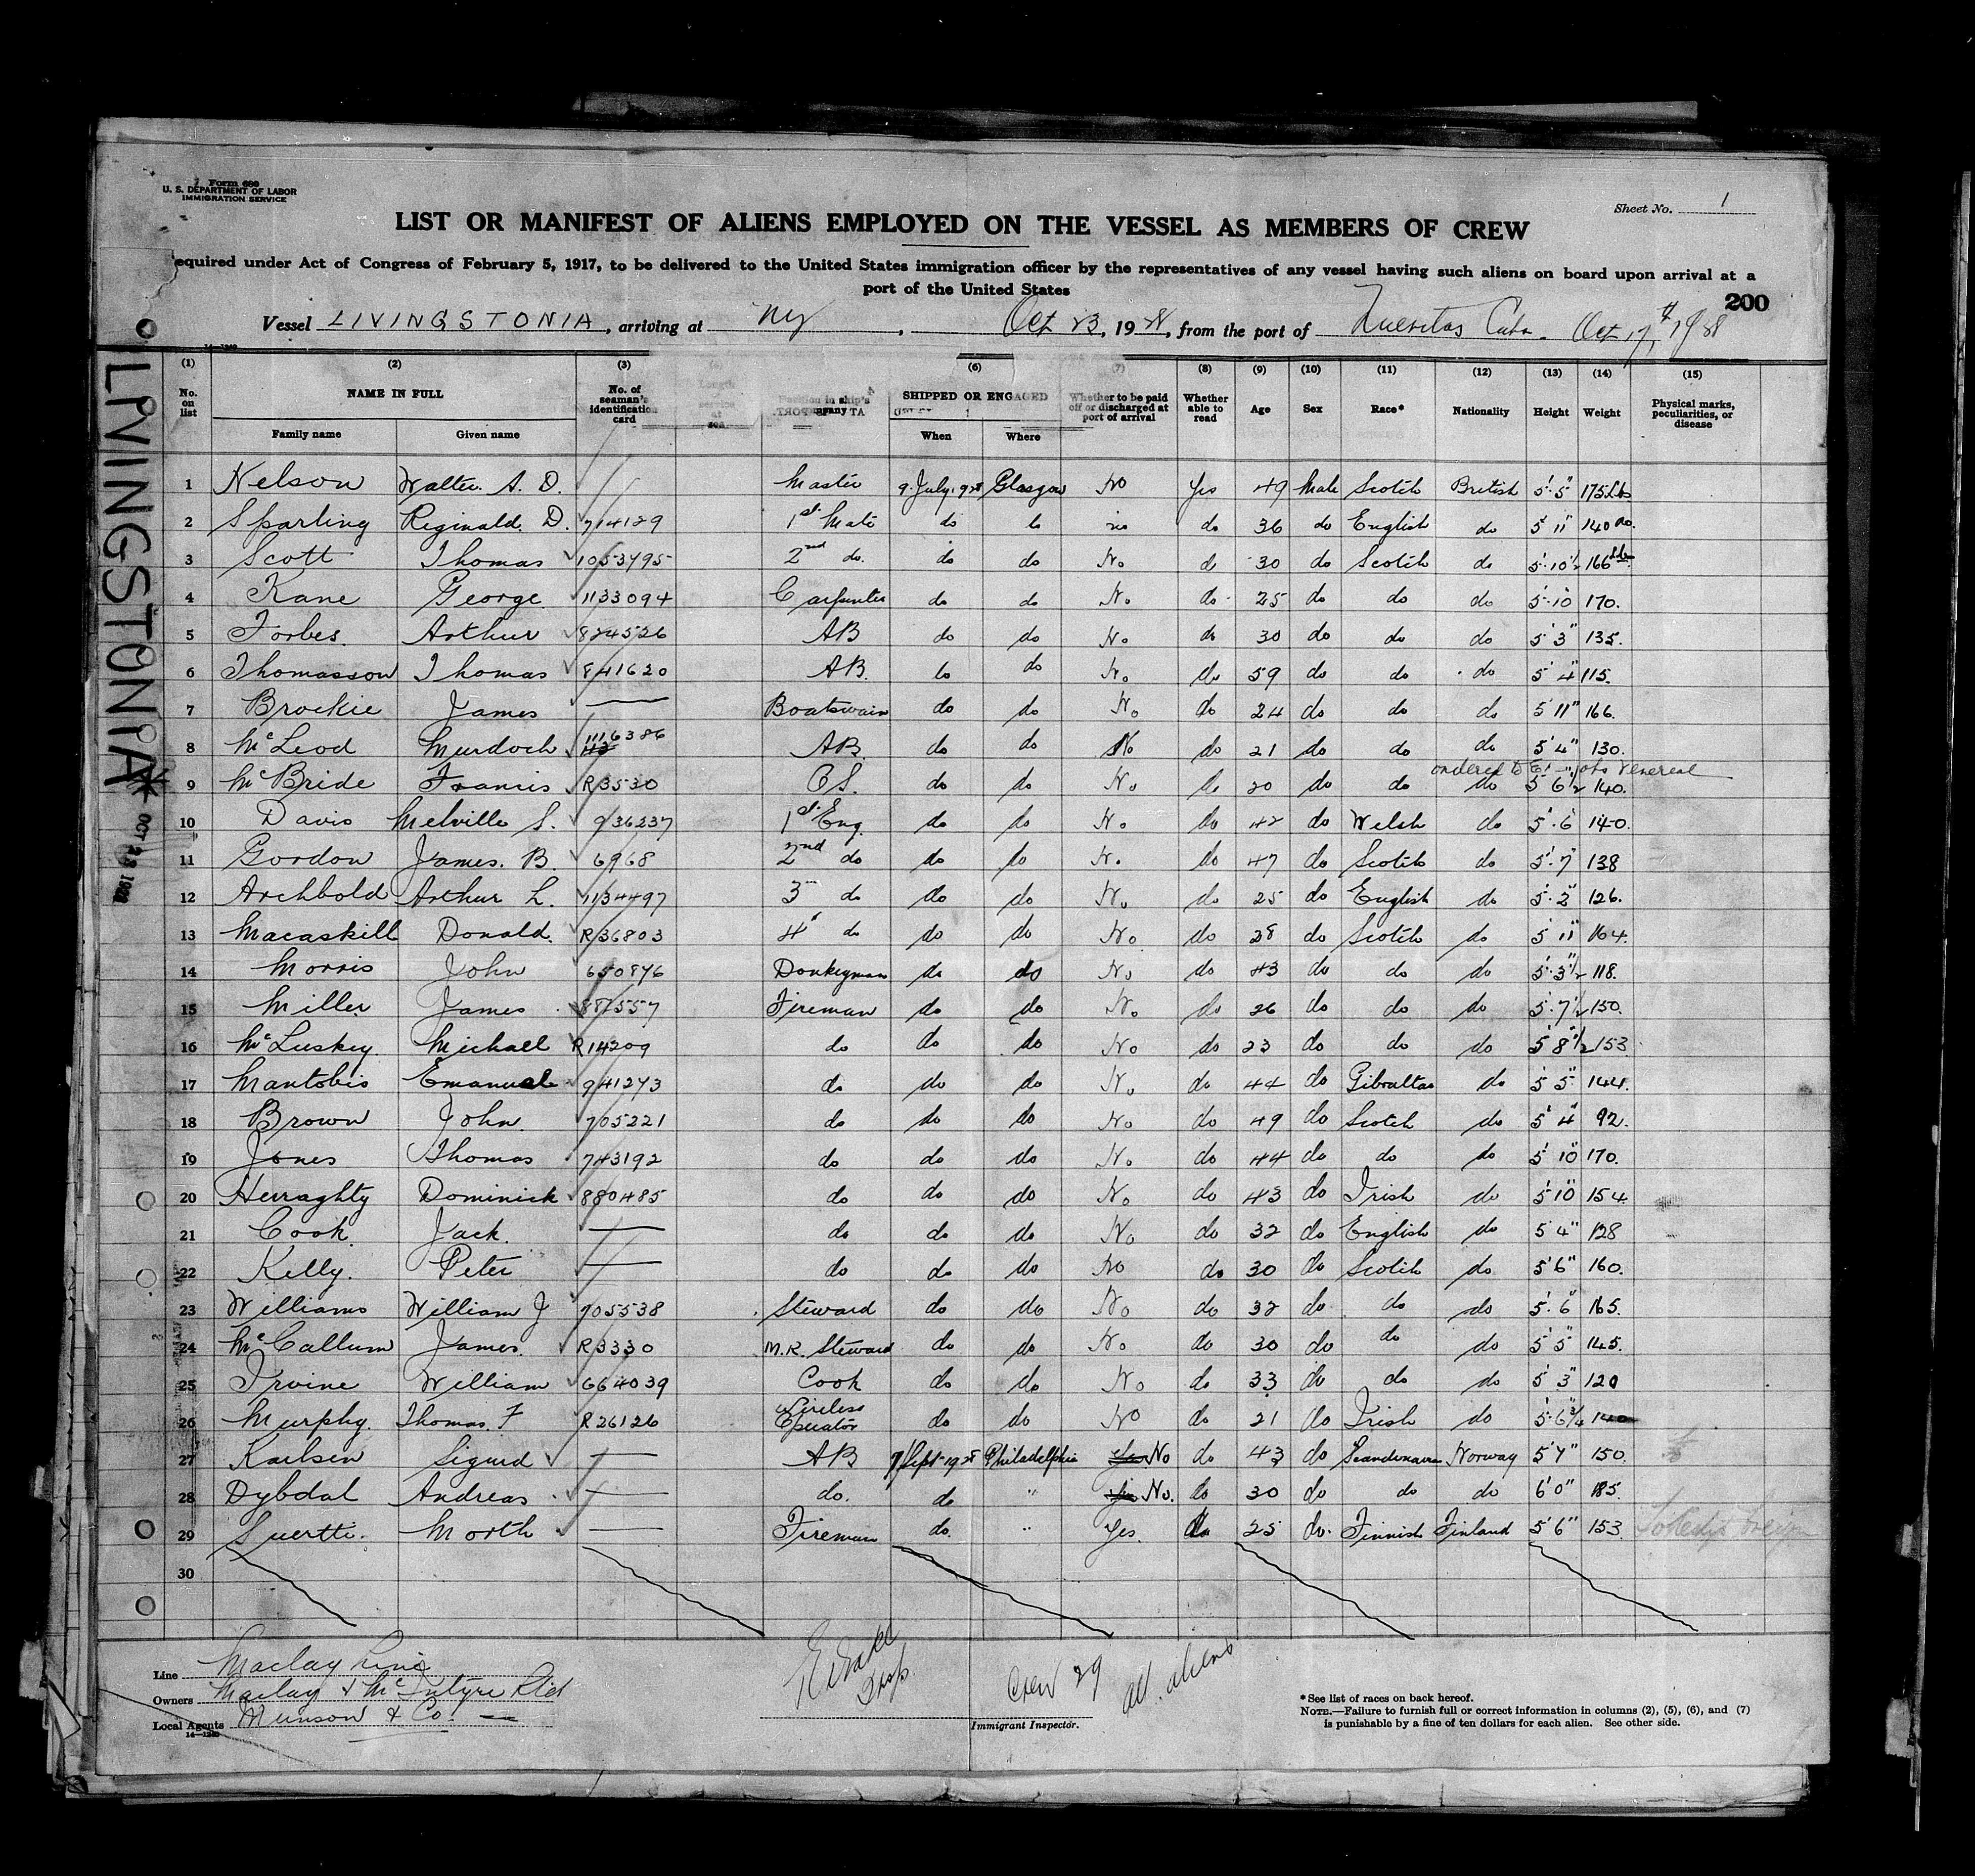 Form 680
U. S. DEPARTMENT OF LABOR
IMMIGRATION SERVICE
Sheet No. 1
LIST OR MANIFEST OF ALIENS EMPLOYED ON THE VESSEL AS MEMBERS OF CREW
equired under Act of Congress of February 5, 1917, to be delivered to the United States immigration officer by the representatives of any vessel having such aliens on board upon arrival at a
port of the United States
200
Vessel LIVINGSTONIA, arriving at Ny, Oct 23, 1928, from the port of Cuba Oct 17th, 1928
14—1240
LIVINGSTONIA
OCT 23 1928
(1) (2) (3) (6) (7) (8) (9) (10) (11) (12) (13) (14) (15)
No. on list NAME IN FULL Family name Given name No. of seaman's identification card Position in ship's company SHIPPED OR ENGAGED When Where Whether to be paid off or discharged at port of arrival Whether able to read Age Sex Race* Nationality Height Weight Physical marks, peculiarities, or disease
1 Nelson Walter. A. D. Master 9 July 1928 Glasgow No Yes 49 Male Scotch British 5'.5" 175 Lbs
2 Sparling Reginald. D. 714129 1st Mate do do no do 36 do English do 5' 11" 140 do.
3 Scott Thomas 1053795 2nd do. do do No do 30 do Scotch do 5'.10½ 166 Lbs
4 Kane George 1133094 Carpenter do do No do 25 do do do 5'.10 170.
5 Forbes Arthur 824526 AB do do No do 30 do do do 5' 3" 135.
6 Thomasson Thomas 841620 AB. do do No do 59 do do do 5' 4" 115.
7 Brockie James — Boatswain do do No do 24 do do do 5' 11" 166.
8 McLeod Murdoch 1116386 AB. do do No do 21 do do do 5' 4" 130.
ordered to venereal
9 McBride Francis R3530 O.S. do do No do 20 do do do 5' 6½ 140.
10 Davis Melville S. 936237 1st Eng. do do No do 42 do Welsh do 5'.6 140.
11 Gordon James. B. 6968 2nd do do do No do 47 do Scotch do 5'.7" 138
12 Archbold Arthur L. 1134497 3 do do do No do 25 do English do 5'.2" 126.
13 Macaskill Donald. R36803 4 do do do No do 28 do Scotch do 5' 11" 164.
14 Morris John 650876 Donkeyman do do No do 43 do do do 5'.3½ 118.
15 Miller James 881557 Fireman do do No do 26 do do do 5'.7½ 150.
16 McLuskey Michael R14209 do do do No do 23 do do do 5' 8½ 153
17 Mantobis Emanuel 941273 do do do No do 44 do Gibraltar do 5' 5" 144.
18 Brown John 705221 do do do No do 49 do Scotch do 5' 4" 92.
19 Jones Thomas 743192 do do do No do 44 do do do 5' 10" 170.
20 Herraghty Dominick 880485 do do do No do 43 do Irish do 5' 10" 154.
21 Cook Jack. — do do do No do 32 do English do 5' 4" 128
22 Kelly. Peter — do do do No do 30 do Scotch do 5' 6" 160.
23 Williams William J 705538 Steward do do No do 32 do do do 5'.6" 165.
24 McCallum James. R3330 M.R. Steward do do No do 30 do do do 5' 5" 145.
25 Irvine William 664039 Cook do do No do 33 do do do 5' 3" 120
26 Murphy. Thomas. F R26126 Wireless Operator do do No do 21 do Irish do 5'.6¾ 140
27 Karlsen Sigurd — AB 7 Sept 1928 Philadelphia Yes No do 43 do Scandinavian Norway 5' 7" 150.
28 Dybdal Andreas — do. do " Yes No. do 30 do do do 6' 0" 185.
29 Suertti. Morth — Fireman do. " Yes. do 25 do. Finnish Finland 5' 6" 153
30
Line Maclay Line
Owners Maclay & McIntyre Ltd
Local Agents Munson & Co.
14—1240
Insp.
Immigrant Inspector.
Crew 29
all aliens
*See list of races on back hereof.
NOTE.—Failure to furnish full or correct information in columns (2), (5), (6), and (7)
is punishable by a fine of ten dollars for each alien. See other side.